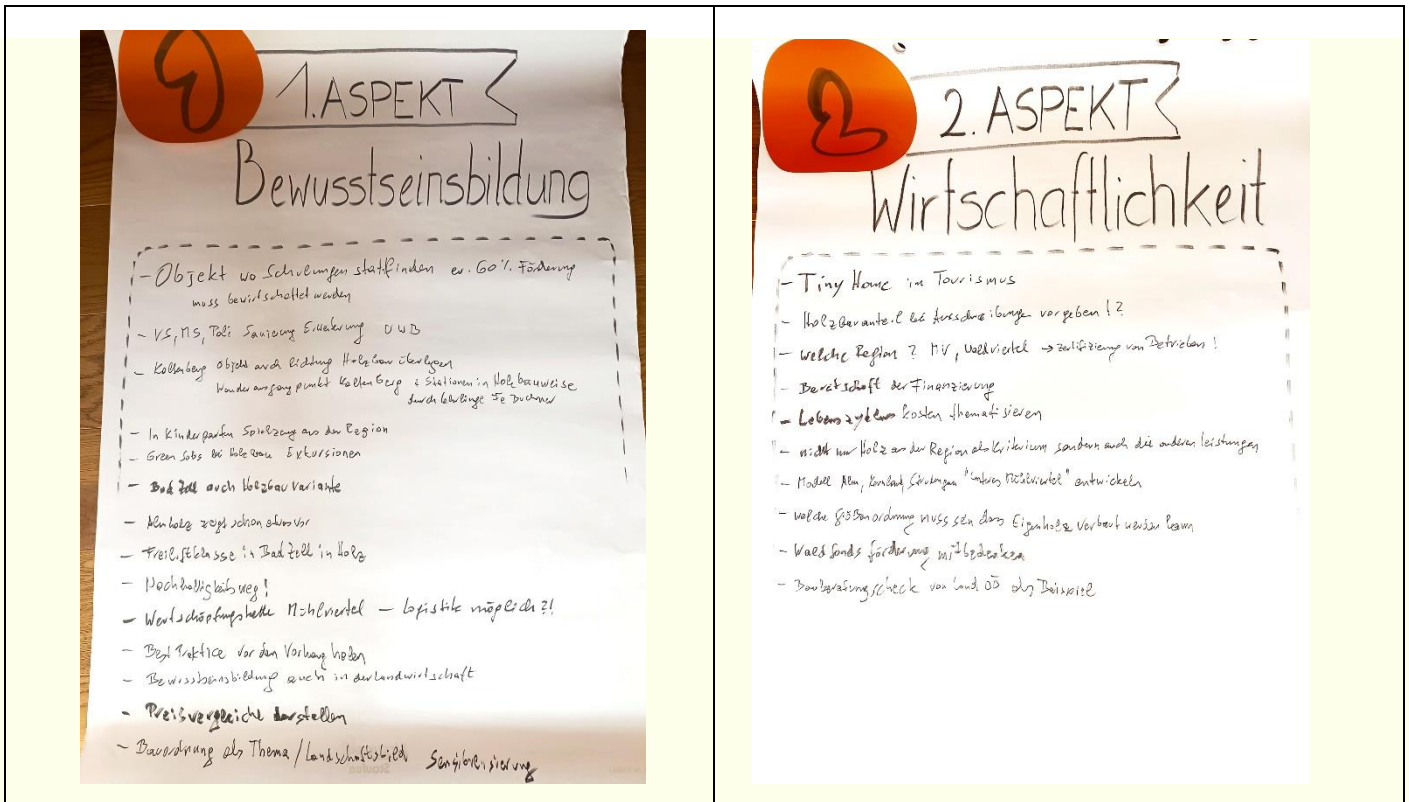 1. ASPEKT
Bewusstseinsbildung
- Objekt wo Schulungen stattfinden ev. 60% Förderung
muss bewirtschaftet werden
- VS, MS, Poli Sanierung Erweiterung UWB
- Kollenberg Objekt auch Richtung Holzbau überlegen
Wanderausgangspunkt Kollenberg Stationen in Holzbauweise
durch Lehrlinge Fe Buchner
- In Kindergarten Spielzeug aus der Region
- Green Jobs bei Holzbau Exkursionen
- Bad Zell auch Holzbauvariante
- Almholz zeigt schon etwas vor
- Freiluftklasse in Bad Zell in Holz
- Nachhaltigkeitsweg!
- Wertschöpfungskette Mühlviertel - Logistik möglich?!
- Best Praktice vor den Vorhang holen
- Bewusstseinsbildung auch in der Landwirtschaft
- Preisvergleiche darstellen
- Bauordnung als Thema / Landschaftsbild Sensibilisierung
2. ASPEKT
Wirtschaftlichkeit
- Tiny Home im Tourismus
- Holzbauanteil bei Ausschreibungen vorgeben!?
- welche Region? MV, Waldviertel → Zertifizierung von Betrieben!
- Beratschaft der Finanzierung
- Lebenszyklus kosten thematisieren
- nicht nur Holz aus der Region als Kriterium sondern auch die anderen Leistungen
- Modell Alm, Kernland, Strudengau "unteres Mühlviertel" entwickeln
- welche Größenordnung muss sein dass Eigenholz verbaut werden kann
- Waldfonds förderung mitbedenken
- Bauberatungsscheck von Land OÖ als Beispiel